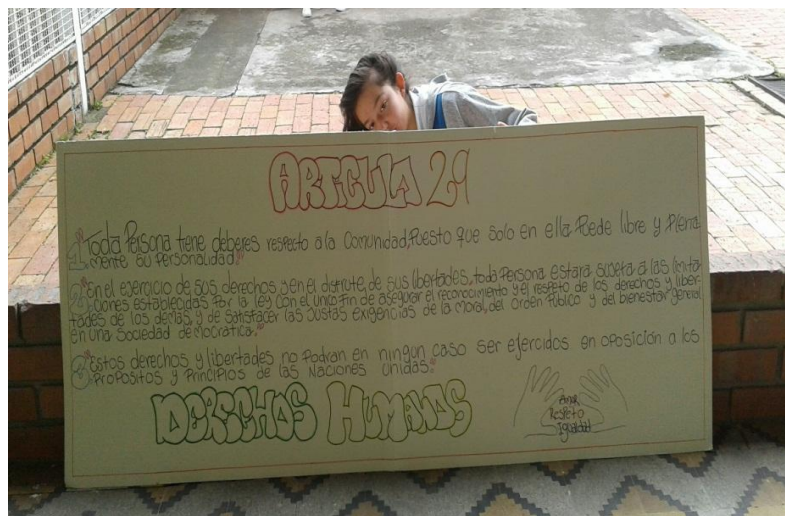 ARTICULO 29
1. Toda Persona tiene deberes respecto a la Comunidad, Puesto que solo en ella Puede libre y Plena
mente su Personalidad.
2. En el ejercicio de sus derechos y en el disfrute, de sus libertades, toda Persona estara sujeta a las limita
ciones establecidas Por la ley con el unico fin de asegurar el reconocimiento y el respeto de los derechos y liber-
tades de los demas, y de satisfacer las Justas exigencias de la moral, del orden Publico y del bienestar general
en una Sociedad democratica.
3. Estos derechos y libertades no Podran en ningun caso ser ejercidos en oposicion a los
Propositos y Principios de las Naciones Unidas.
DERECHOS HUMANOS
Amor
Respeto
Igualdad